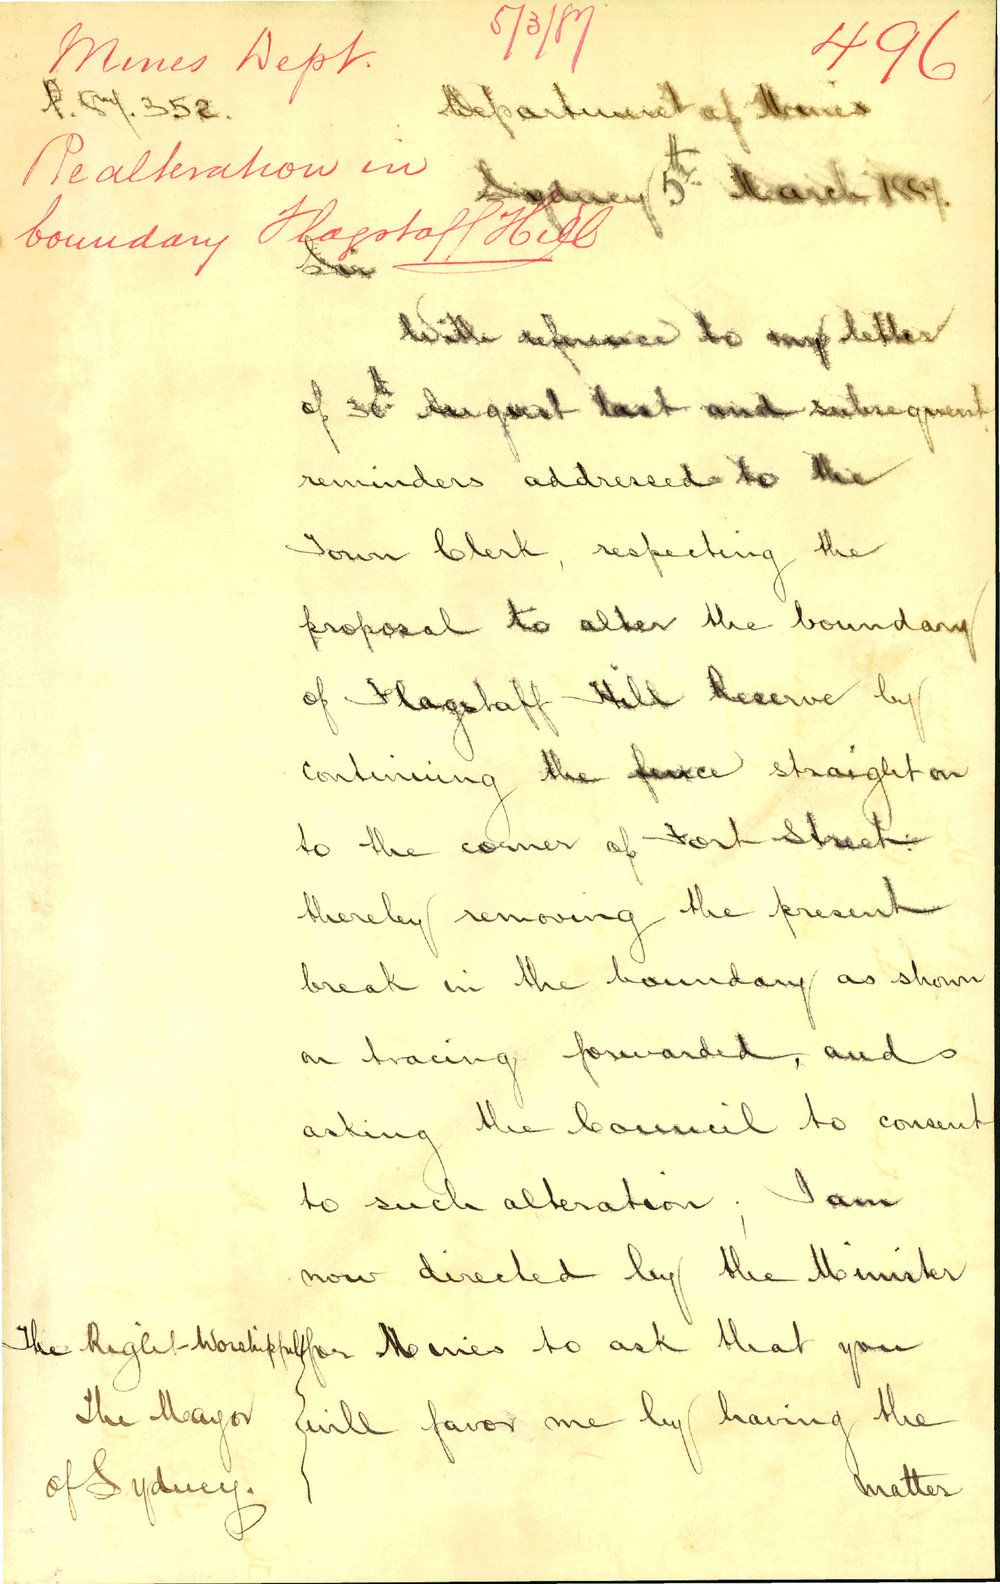 5/3/87
496
Mines Dept.
P. 87. 352.
Re alteration in
boundary Flagstaff Hill
Department of Mines
Sydney 5th March 1887.
Sir
With reference to my letter
of 30th August last and subsequent
reminders addressed to the
Town Clerk, respecting the
proposal to alter the boundary
of Flagstaff Hill Reserve by
continuing the fence straight on
to the corner of Fort Street
thereby removing the present
break in the boundary as shown
on tracing forwarded, and
asking the Council to consent
to such alteration; I am
now directed by the Minister
for Mines to ask that you
will favor me by having the
matter
The Right Worshipful
The Mayor
of Sydney.